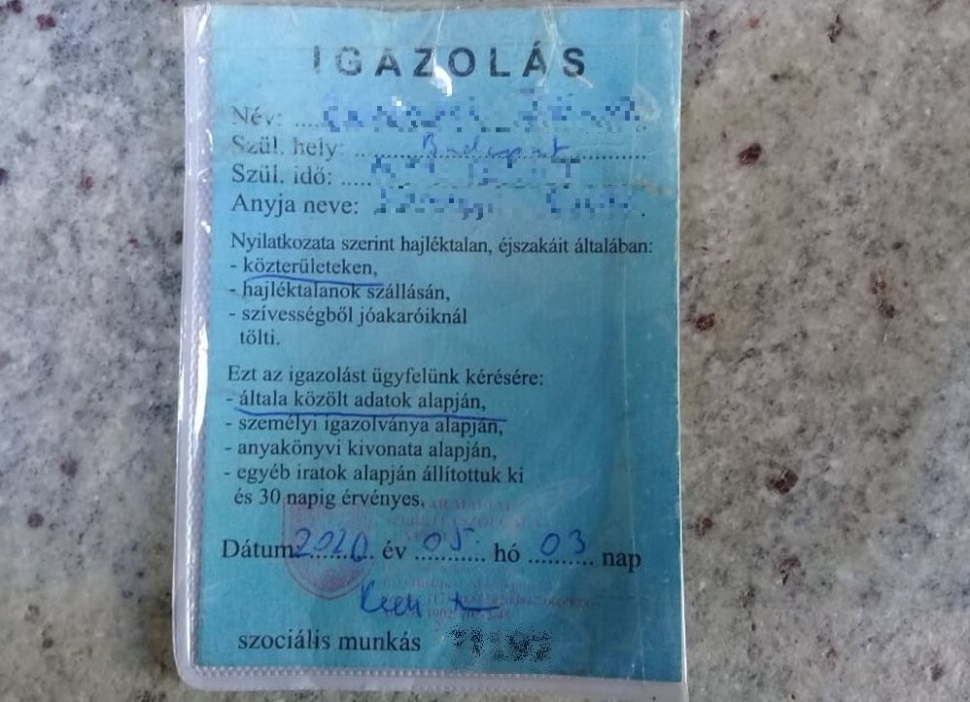 IGAZOLÁS
Név:
Szül. hely: Budapest
Szül. idő:
Anyja neve:
Nyilatkozata szerint hajléktalan, éjszakáit általában:
- közterületeken,
- hajléktalanok szállásán,
- szívességből jóakaróiknál
tölti.
Ezt az igazolást ügyfelünk kérésére:
- általa közölt adatok alapján,
- személyi igazolványa alapján,
- anyakönyvi kivonata alapján,
- egyéb iratok alapján állítottuk ki
és 30 napig érvényes.
Dátum: 2020 év 05. hó 03 nap
szociális munkás